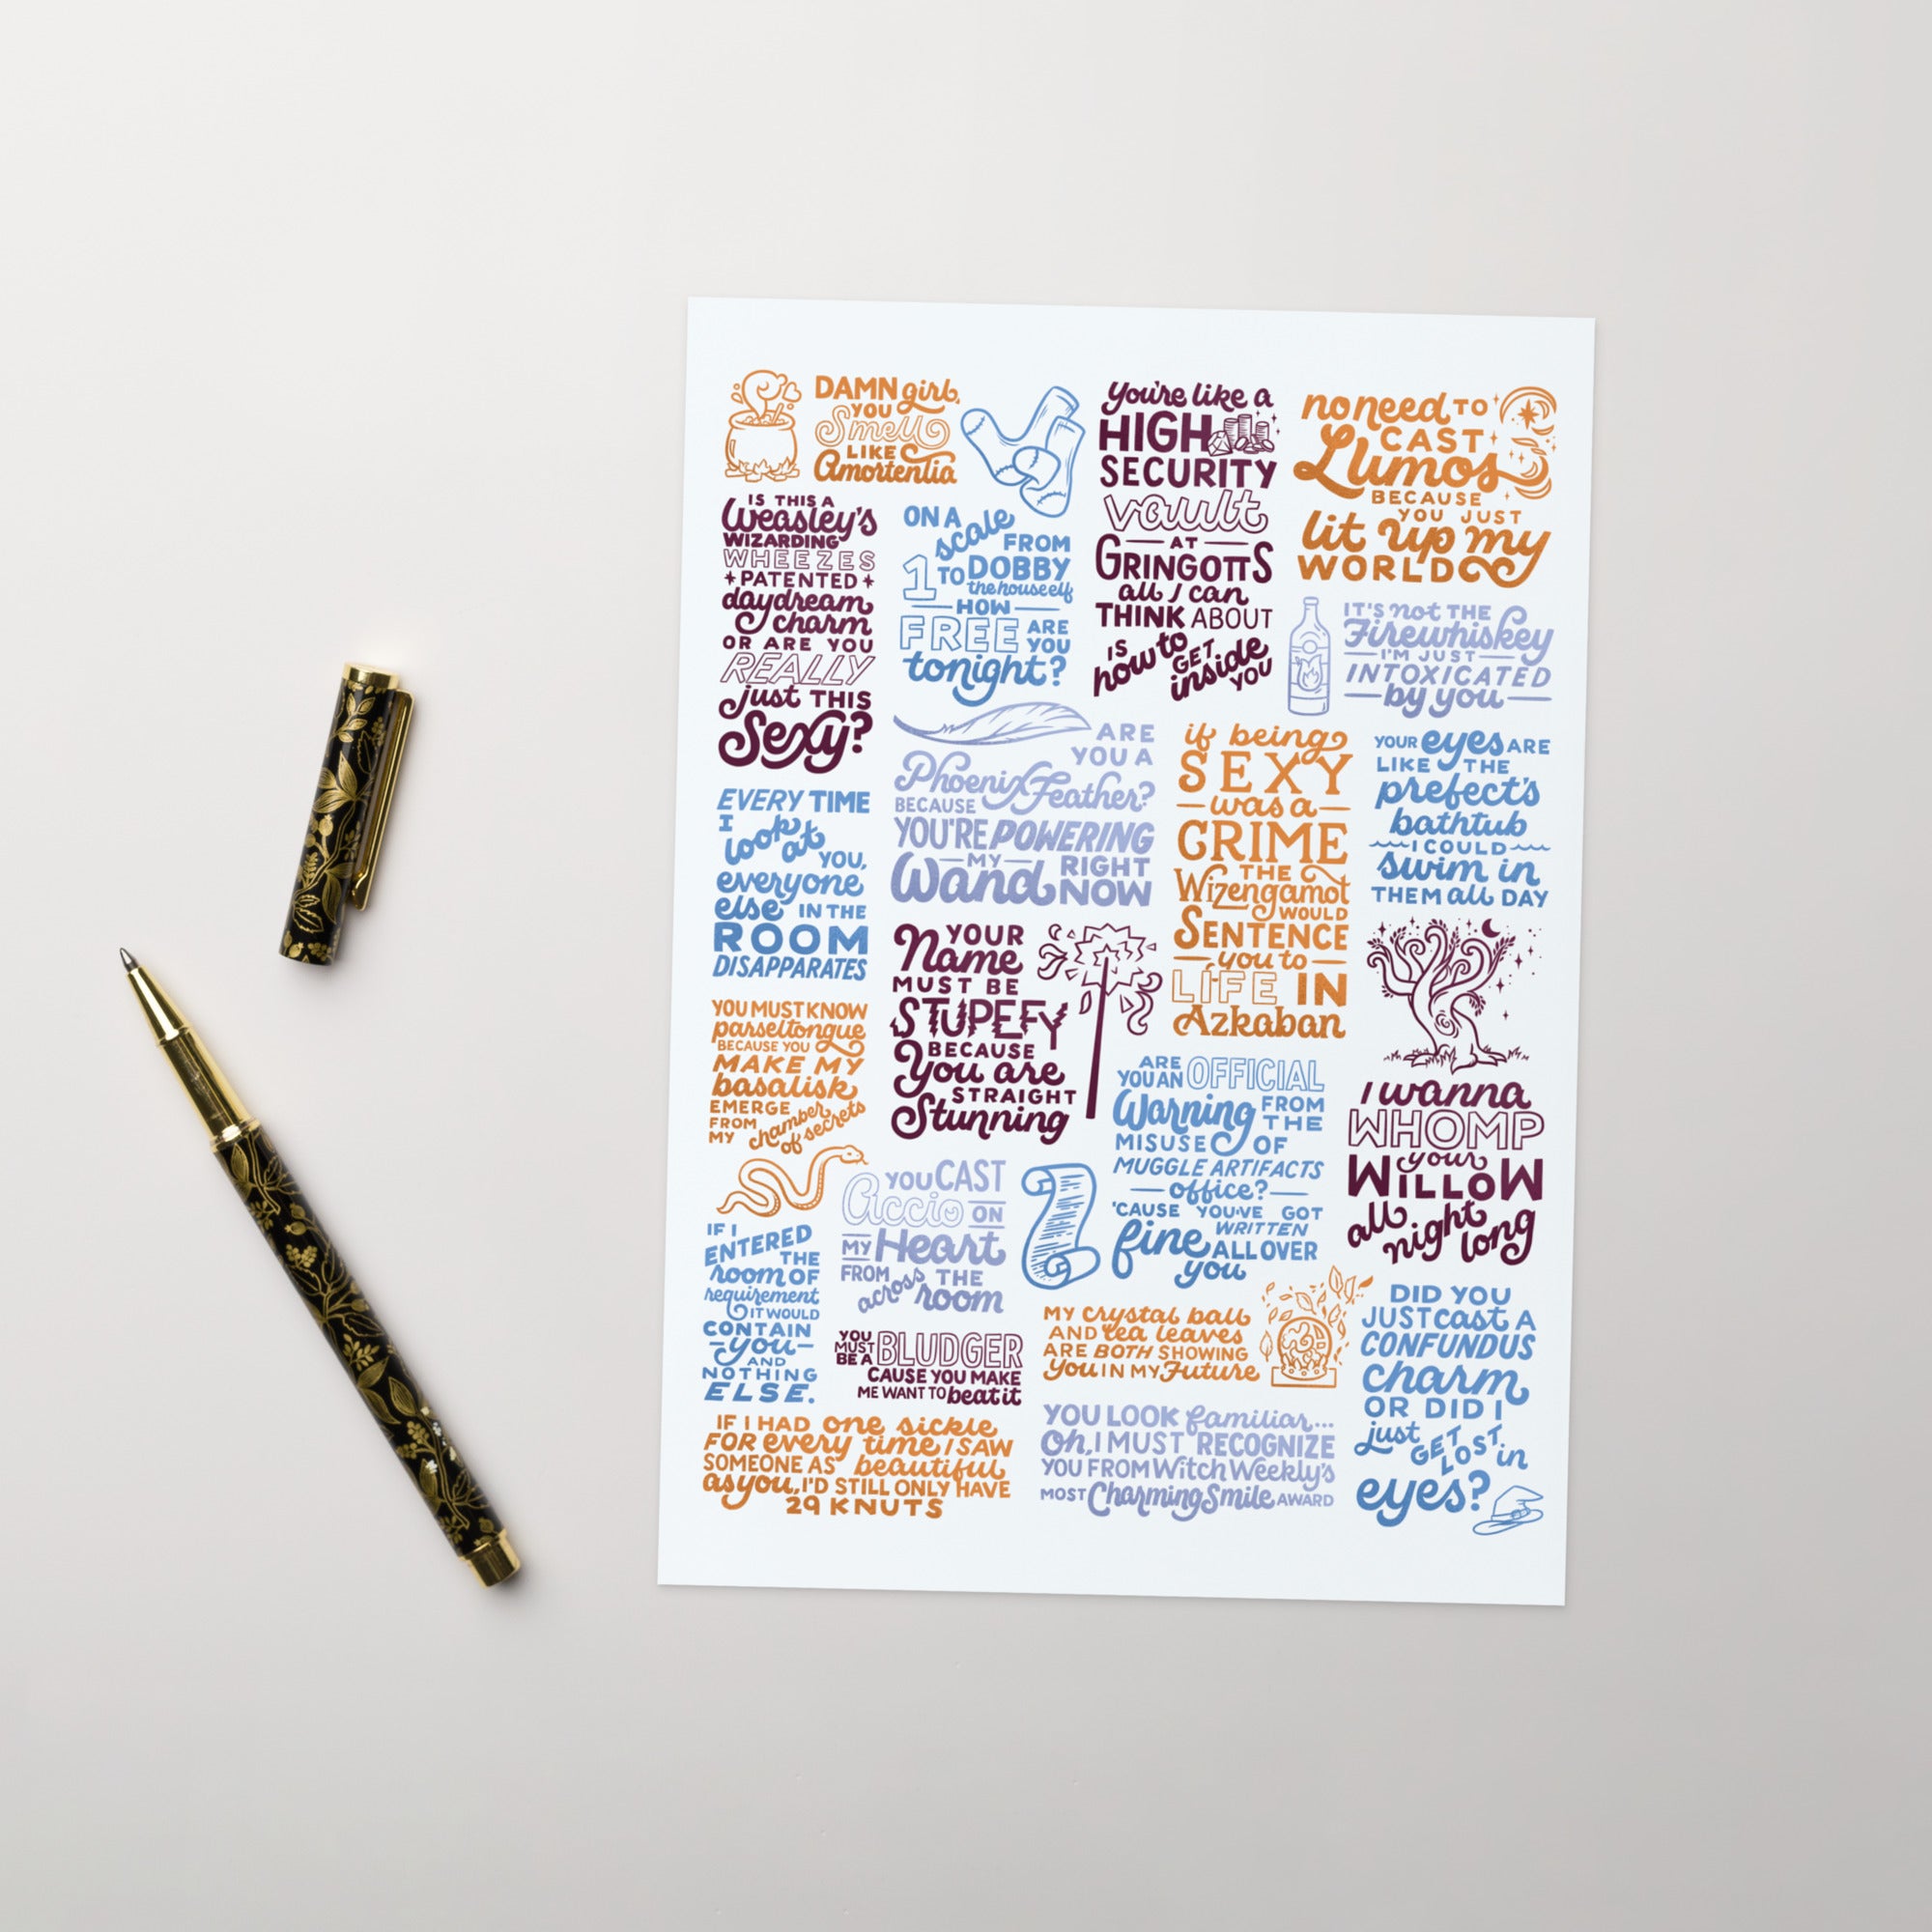 DAMN girl,
YOU
Smell
LIKE
Amortentia
You're like a
HIGH
SECURITY
vault
AT
GRINGOTTS
all I can
THINK ABOUT
IS
how to
GET
inside
YOU
no need TO
CAST
Lumos
BECAUSE
YOU JUST
lit up my
WORLD
IS THIS A
Weasley's
WIZARDING
WHEEZES
PATENTED
daydream
charm
OR ARE YOU
REALLY
just THIS
Sexy?
ON A
scale
FROM
1 TO DOBBY
the house elf
HOW
FREE ARE
YOU
tonight?
IT'S not THE
Firewhiskey
I'M JUST
INTOXICATED
by you
ARE
YOU A
Phoenix Feather?
BECAUSE
YOU'RE POWERING
MY
Wand RIGHT
NOW
if being
SEXY
was a
CRIME
THE
Wizengamot
WOULD
SENTENCE
you to
LIFE IN
Azkaban
YOUR eyes ARE
LIKE THE
prefect's
bathtub
I COULD
swim in
THEM all DAY
EVERY TIME
I
look
at
YOU,
everyone
else IN THE
ROOM
DISAPPARATES
YOUR
Name
MUST BE
STUPEFY
BECAUSE
You are
STRAIGHT
Stunning
YOU MUST KNOW
parseltongue
BECAUSE YOU
MAKE MY
basalisk
EMERGE
FROM
MY
chamber
of secrets
ARE
YOU AN OFFICIAL
Warning FROM
THE
MISUSE OF
MUGGLE ARTIFACTS
office?
'CAUSE YOU'VE GOT
WRITTEN
fine ALL OVER
you
I wanna
WHOMP
your
WILLOW
all
night
long
YOU CAST
Accio ON
MY Heart
FROM
across
THE
room
IF I
ENTERED
THE
room OF
requirement
IT WOULD
CONTAIN
you
AND
NOTHING
ELSE.
YOU
MUST
BE A BLUDGER
CAUSE YOU MAKE
ME WANT TO beat it
MY crystal ball
AND tea leaves
ARE BOTH SHOWING
you IN MY Future
DID YOU
JUST cast A
CONFUNDUS
charm
OR DID I
just
GET
LOST
in
eyes?
IF I HAD one sickle
FOR every time I SAW
SOMEONE AS beautiful
as you, I'D STILL ONLY HAVE
29 KNUTS
YOU LOOK familiar...
Oh, I MUST RECOGNIZE
YOU FROM Witch Weekly's
MOST Charming Smile AWARD